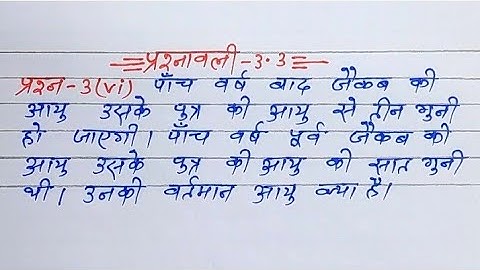 प्रश्नावली-3.3
प्रश्न-3(vi) पाँच वर्ष बाद जैकब की
आयु उसके पुत्र की आयु से तीन गुनी
हो जाएगी। पाँच वर्ष पूर्व जैकब की
आयु उसके पुत्र की आयु की सात गुनी
थी। उनकी वर्तमान आयु क्या है।